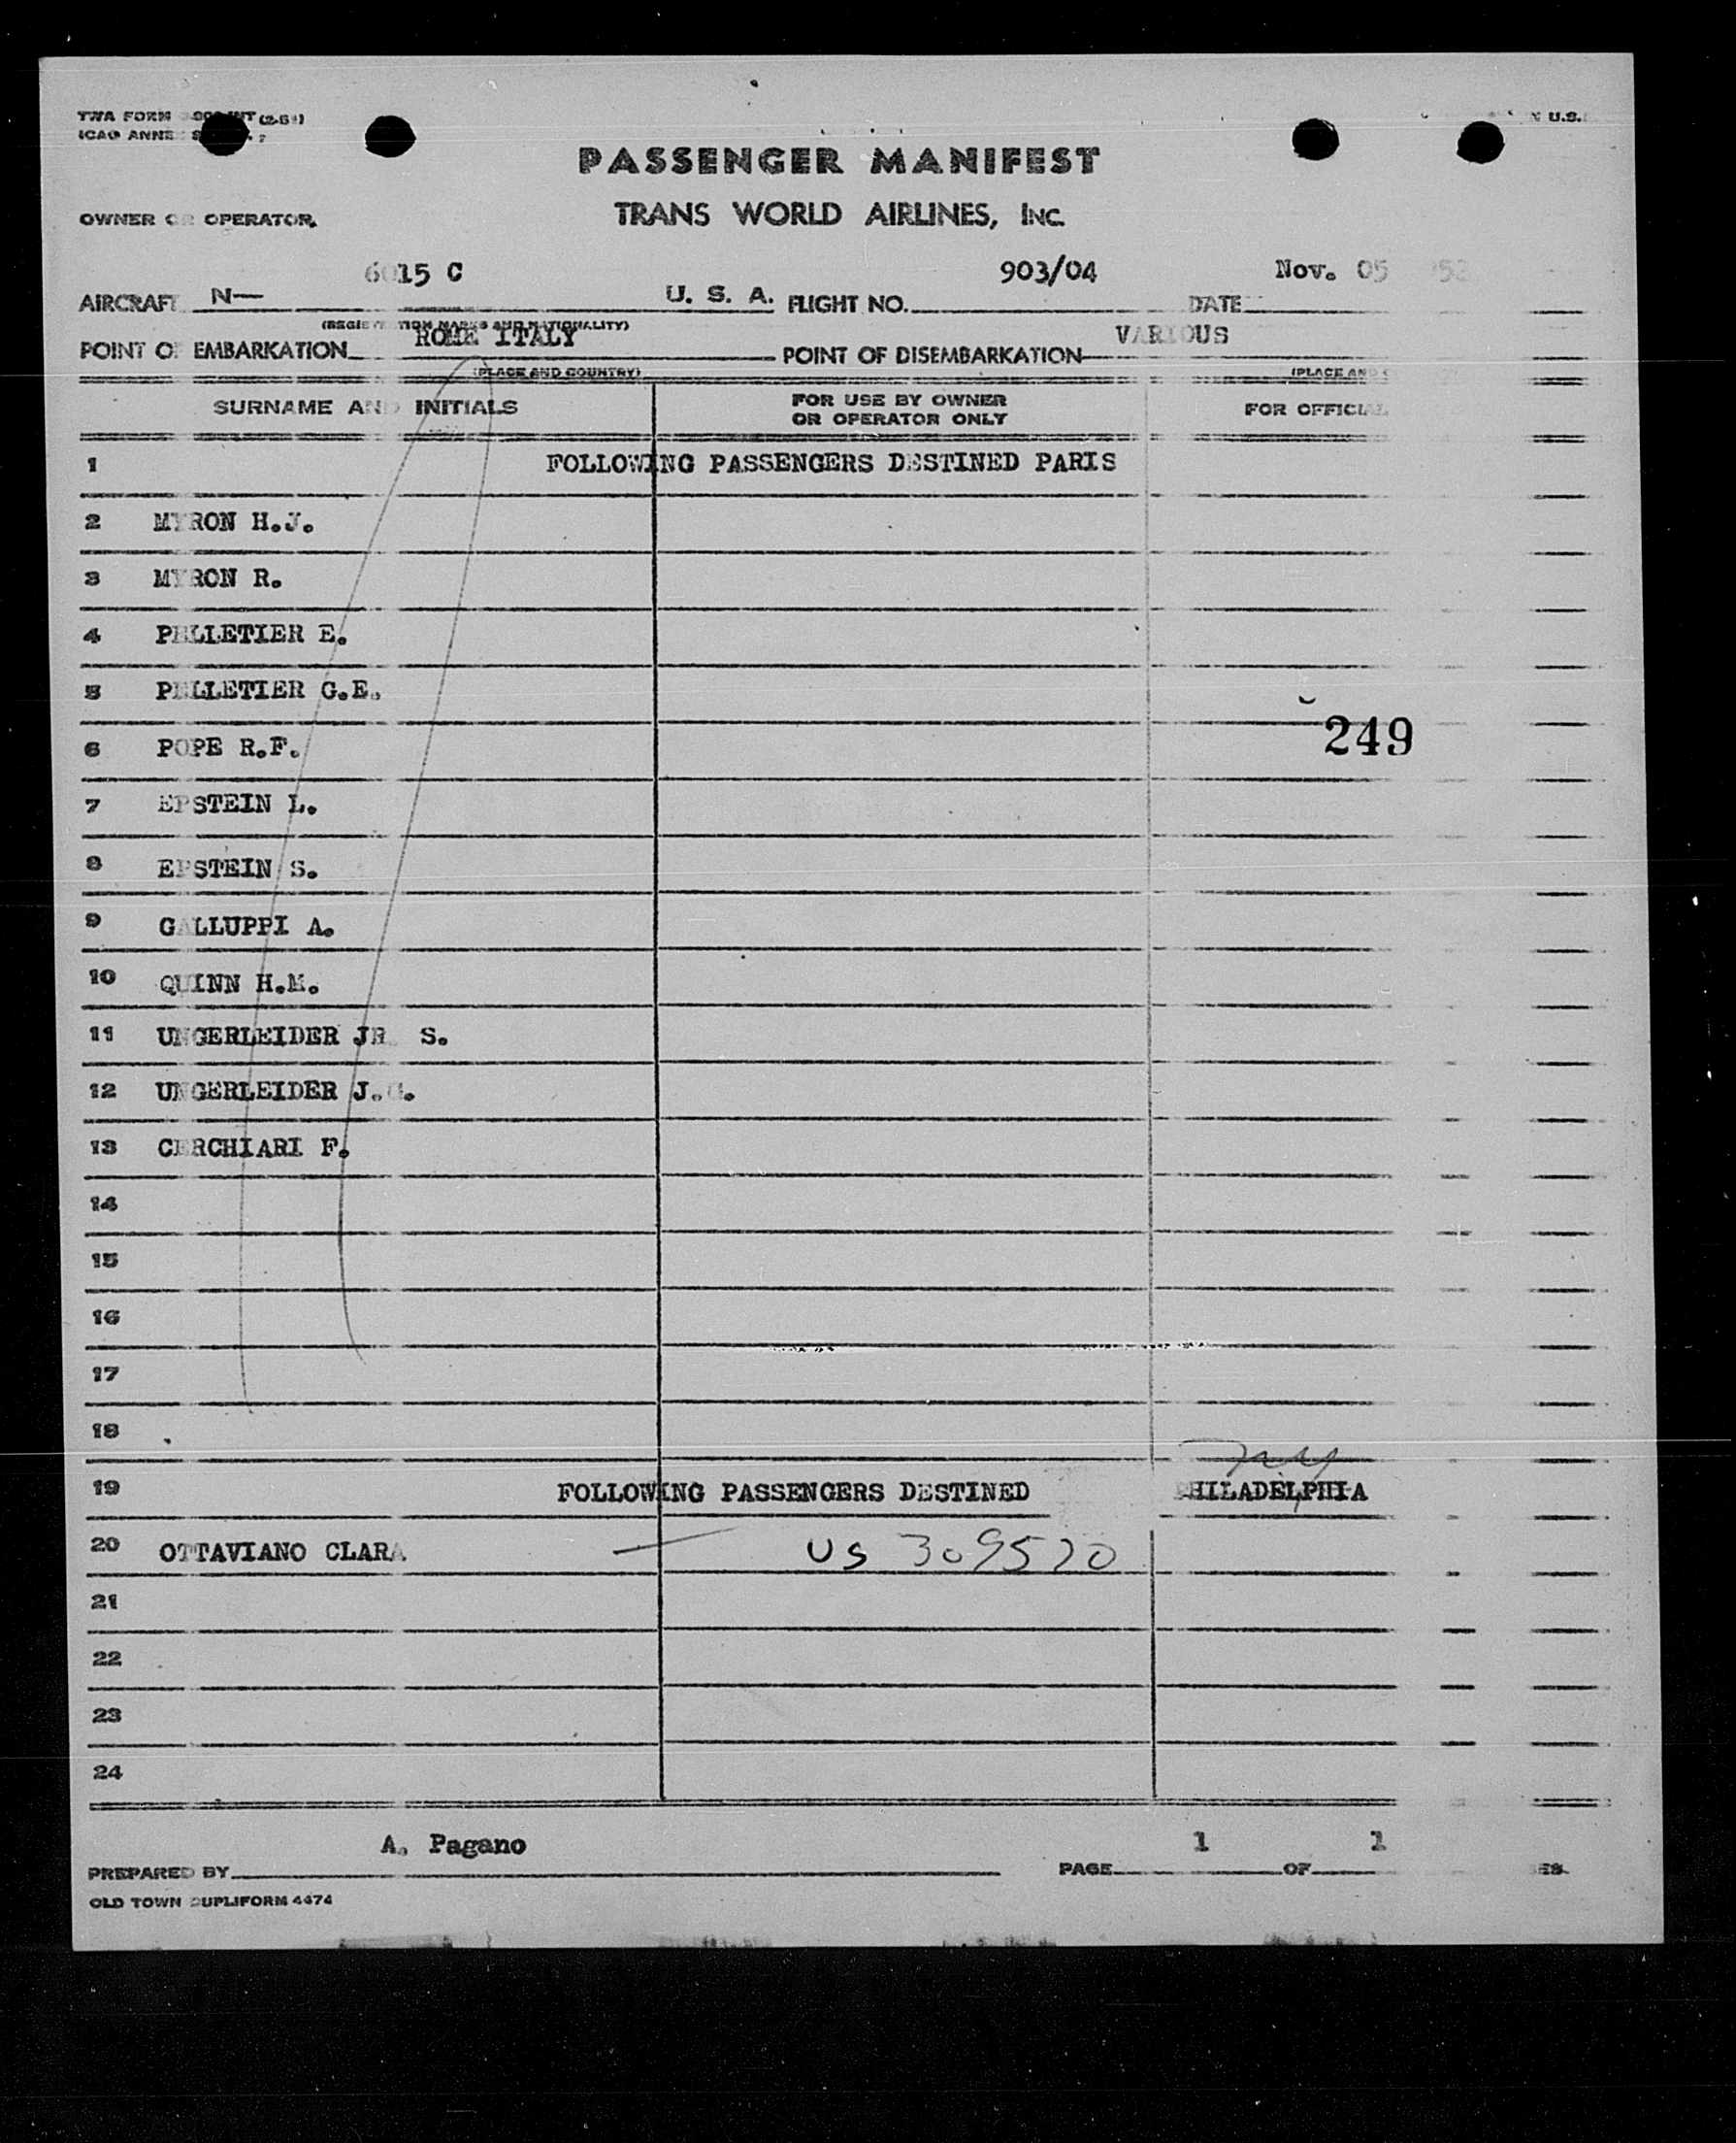 TWA FORM INT (2-51)
ICAO ANNEX
U.S.
PASSENGER MANIFEST
OWNER OR OPERATOR. TRANS WORLD AIRLINES, INC.
AIRCRAFT N— 6015 C U. S. A. FLIGHT NO. 903/04 DATE Nov. 05
(REGISTRATION MARKS AND NATIONALITY)
POINT OF EMBARKATION ROME ITALY POINT OF DISEMBARKATION VARIOUS
(PLACE AND COUNTRY) (PLACE AND
SURNAME AND INITIALS FOR USE BY OWNER OR OPERATOR ONLY FOR OFFICIAL
1 FOLLOWING PASSENGERS DESTINED PARIS
2 MYRON H.J.
3 MYRON R.
4 PELLETIER E.
5 PELLETIER G.E.
249
6 POPE R.F.
7 EPSTEIN L.
8 EPSTEIN S.
9 GALLUPPI A.
10 QUINN H.M.
11 UNGERLEIDER JR S.
12 UNGERLEIDER J.
13 CERCHIARI F.
14
15
16
17
18
19 FOLLOWING PASSENGERS DESTINED PHILADELPHIA
20 OTTAVIANO CLARA US 309520
21
22
23
24
PREPARED BY A. Pagano PAGE 1 OF 1
OLD TOWN DUPLIFORM 4474